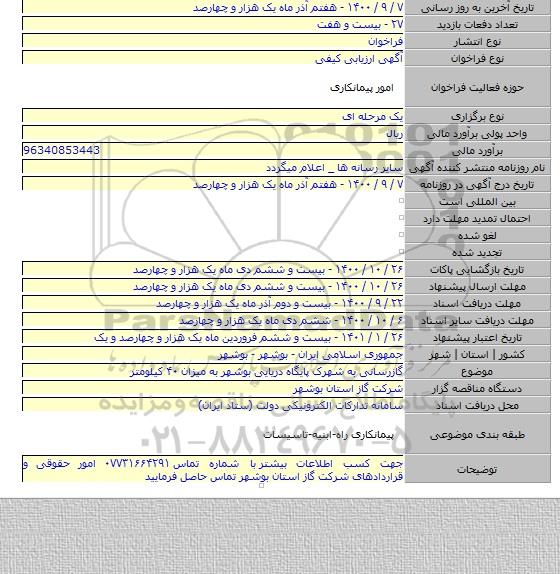 تاریخ آخرین به روز رسانی ۷ / ۹ / ۱۴۰۰ - هفتم آذر ماه یک هزار و چهارصد
تعداد دفعات بازدید ۲۷ - بیست و هفت
نوع انتشار فراخوان
نوع فراخوان آگهی ارزیابی کیفی
حوزه فعالیت فراخوان امور پیمانکاری
نوع برگزاری یک مرحله ای
واحد پولی برآورد مالی ریال
برآورد مالی 96340853443
نام روزنامه منتشر کننده آگهی سایر رسانه ها _ اعلام میگردد
تاریخ درج آگهی در روزنامه ۷ / ۹ / ۱۴۰۰ - هفتم آذر ماه یک هزار و چهارصد
بین المللی است
احتمال تمدید مهلت دارد
لغو شده
تجدید شده
تاریخ بازگشایی پاکات ۲۶ / ۱۰ / ۱۴۰۰ - بیست و ششم دی ماه یک هزار و چهارصد
مهلت ارسال پیشنهاد ۲۶ / ۱۰ / ۱۴۰۰ - بیست و ششم دی ماه یک هزار و چهارصد
مهلت دریافت اسناد ۲۲ / ۹ / ۱۴۰۰ - بیست و دوم آذر ماه یک هزار و چهارصد
مهلت دریافت سایر اسناد ۶ / ۱۰ / ۱۴۰۰ - ششم دی ماه یک هزار و چهارصد
تاریخ اعتبار پیشنهاد ۲۶ / ۱ / ۱۴۰۱ - بیست و ششم فروردین ماه یک هزار و چهارصد و یک
کشور | استان | شهر جمهوری اسلامی ایران - بوشهر - بوشهر
موضوع گازرسانی به شهرک پایگاه دریایی بوشهر به میزان ۴۰ کیلومتر
دستگاه مناقصه گزار شرکت گاز استان بوشهر
محل دریافت اسناد سامانه تدارکات الکترونیکی دولت (ستاد ایران)
طبقه بندی موضوعی پیمانکاری راه-ابنیه-تاسیسات
توضیحات جهت کسب اطلاعات بیشتر با شماره تماس ۰۷۷۳۱۶۶۴۲۹۱ امور حقوقی و
قراردادهای شرکت گاز استان بوشهر تماس حاصل فرمایید
ParsNamadData
پایگاه اطلاع رسانی مناقصه و مزایده
۰۲۱-۸۸۳۴۹۶۷۰-۵